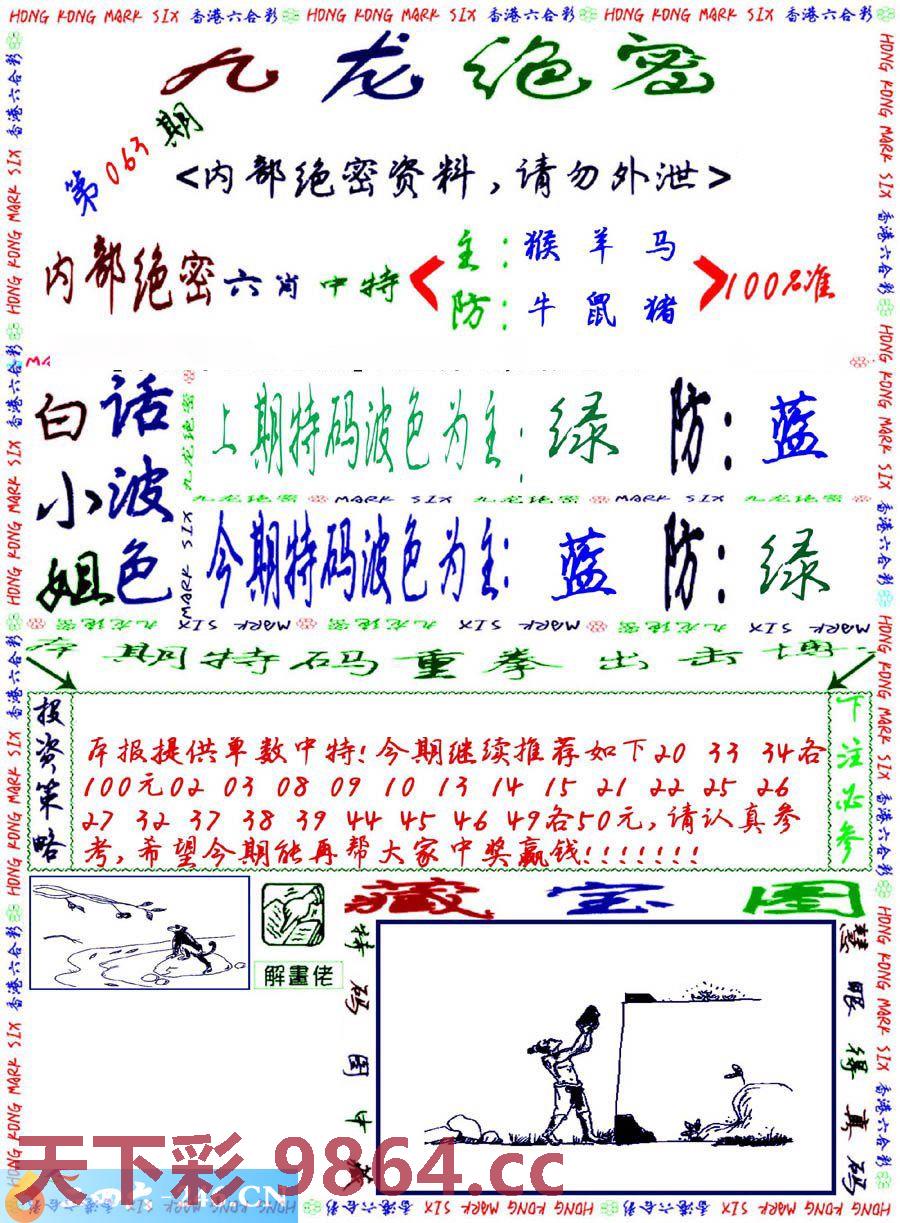 HONG KONG MARK SIX 香港六合彩 HONG KONG MARK SIX 香港六合彩 HONG KONG MARK SIX 香港六合彩
九龙绝密
第063期
<内部绝密资料,请勿外泄>
内部绝密六肖中特
主:猴羊马
防:牛鼠猪
100%准
白话小波姐色
上期特码波色为主:绿 防:蓝
九龙绝密 MARK SIX 九龙绝密 MARK SIX 九龙绝密
今期特码波色为主:蓝 防:绿
MARK SIX 九龙绝密 MARK SIX 九龙绝密 MARK SIX 九龙绝密
期特码重拳出击
投资策略
本报提供单数中特!今期继续推荐如下20 33 34各
100元02 03 08 09 10 13 14 15 21 22 25 26
27 32 37 38 39 44 45 46 49各50元,请认真参
考,希望今期能再帮大家中奖赢钱!!!!!!!
下注必参
解畫佬
藏宝图
特码图中藏
慧眼得真码
天下彩.9864.cc
HONG KONG MARK SIX 香港六合彩